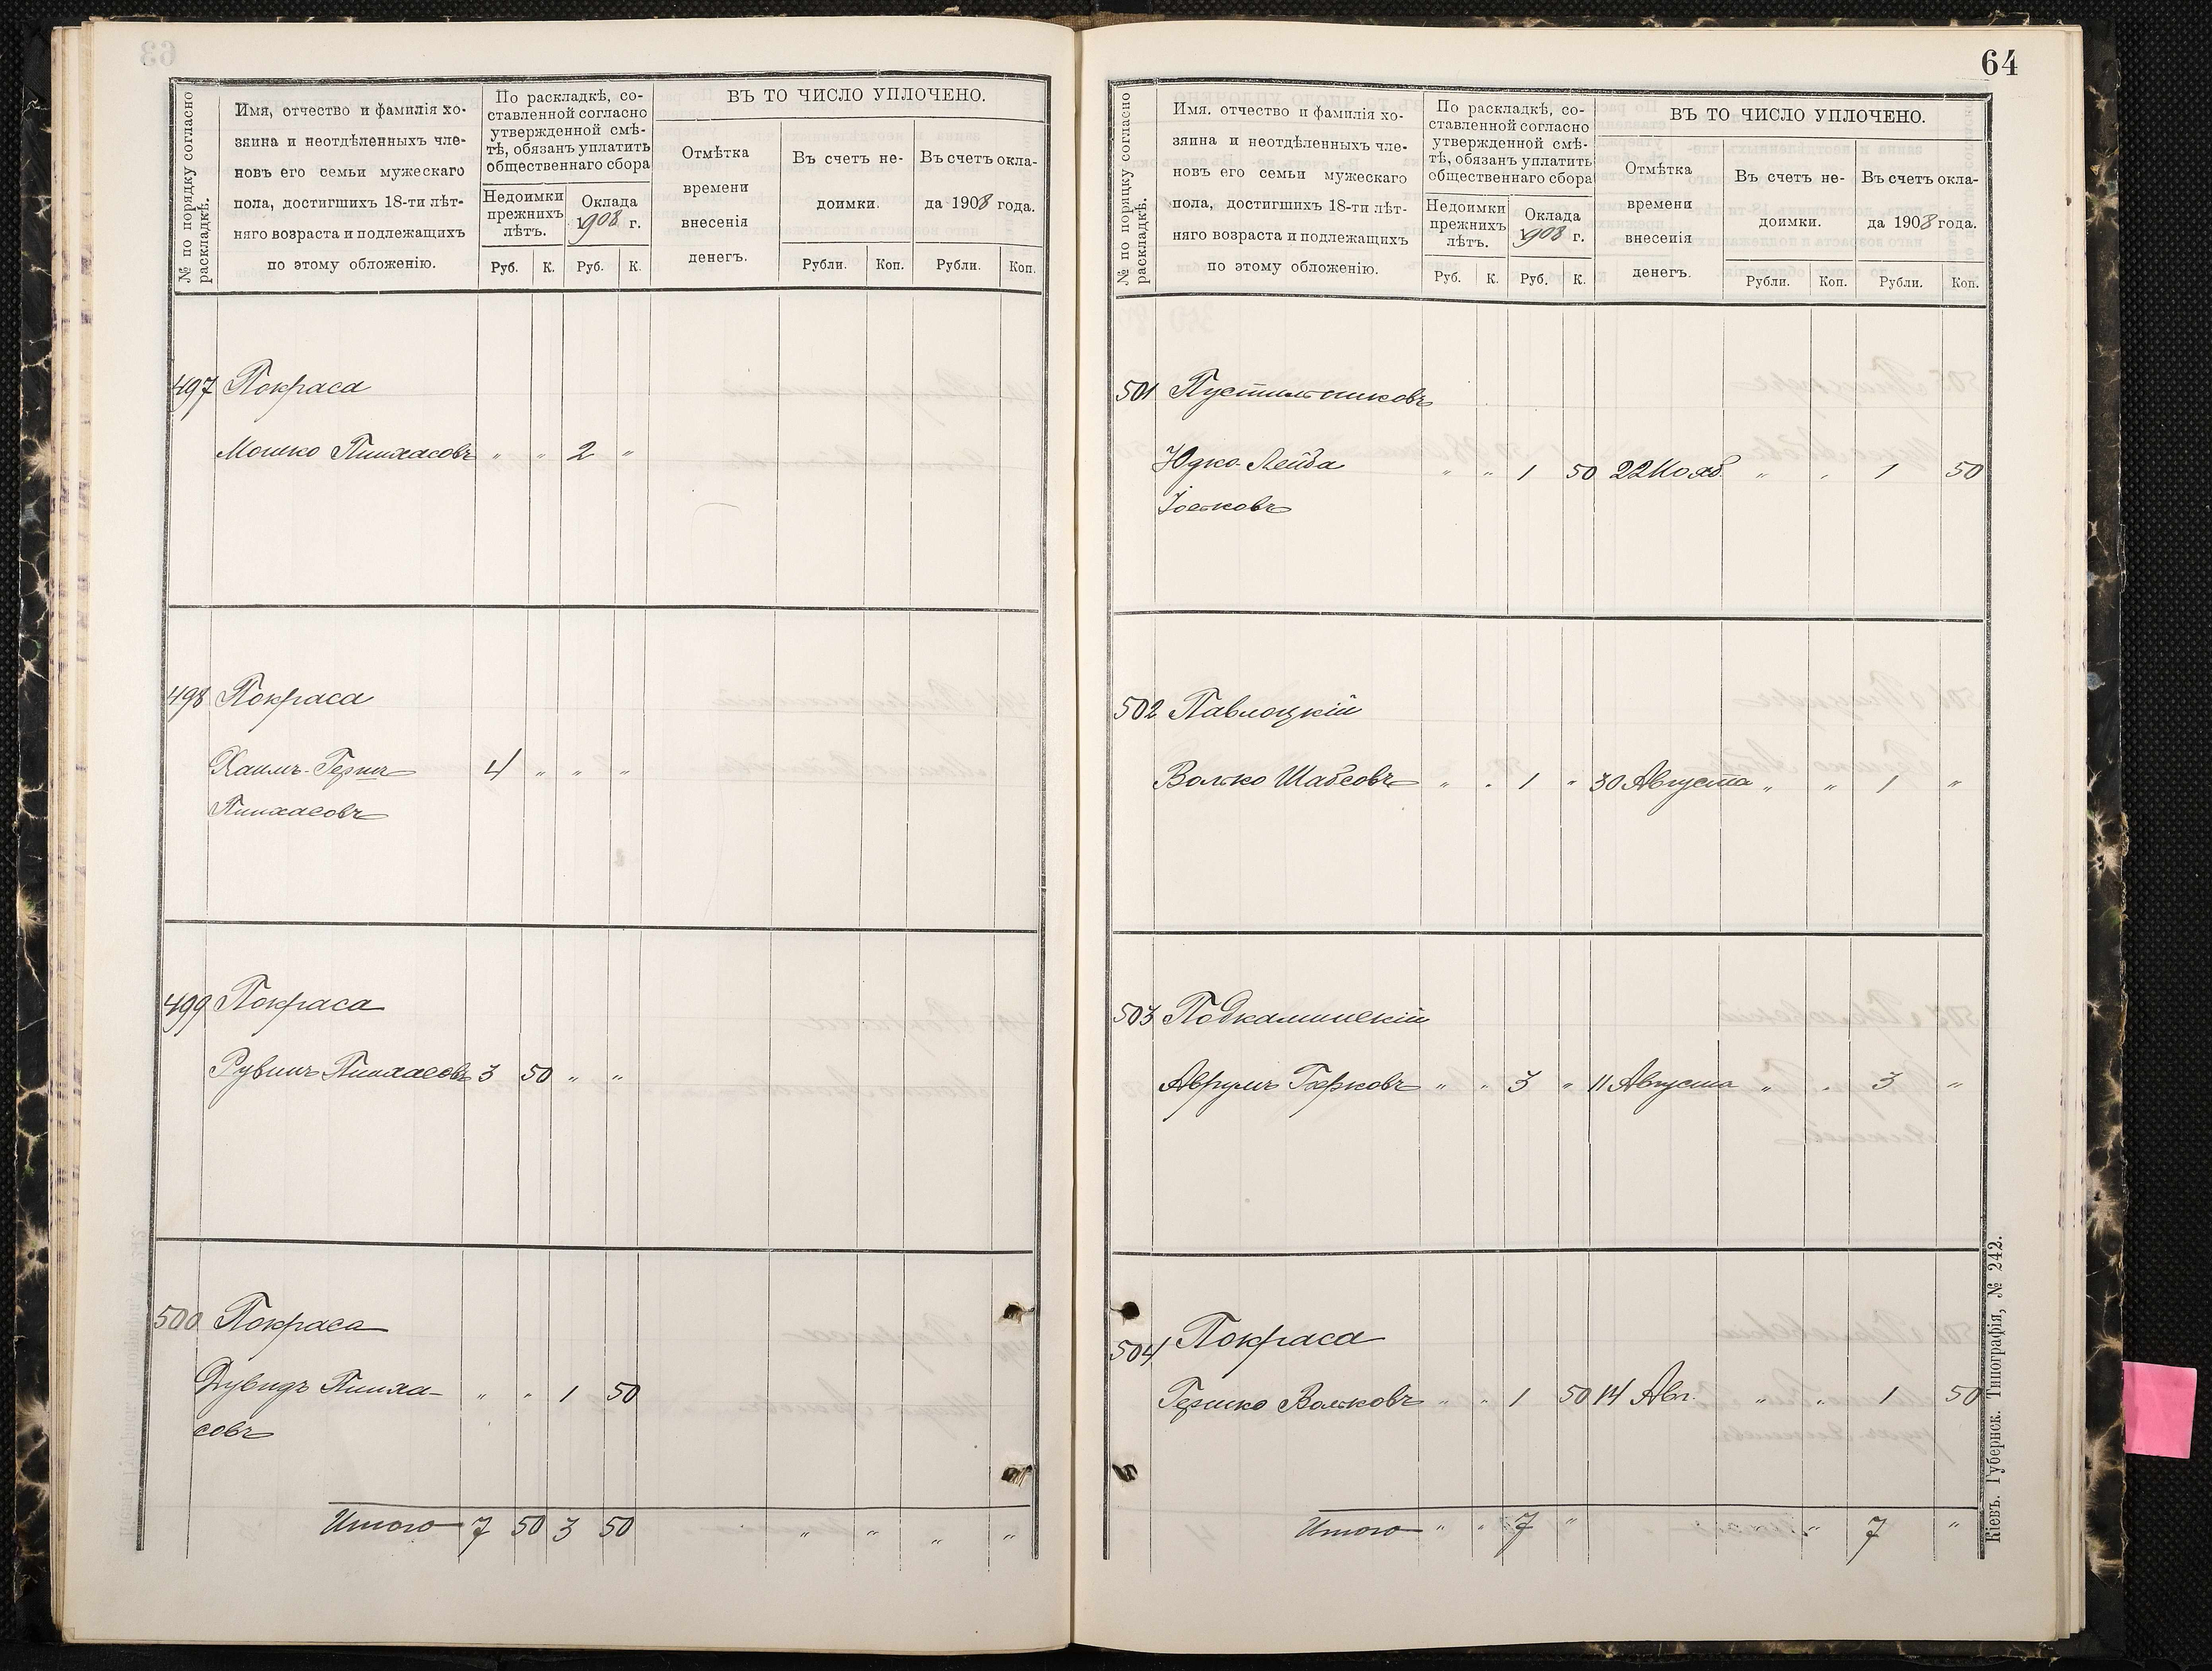 № по порядку согласно
раскладкѣ.
Имя, отчество и фамилія хо-
зяина и неотдѣленныхъ чле-
новъ его семьи мужескаго
пола, достигшихъ 18-ти лѣт-
няго возраста и подлежащихъ
по этому обложенію.
По раскладкѣ, со-
ставленной согласно
утвержденной смѣ-
тѣ, обязанъ уплатить
общественнаго сбора
Недоимки
прежнихъ
лѣтъ.
Оклада
1908 г.
Руб. К. Руб. К.
ВЪ ТО ЧИСЛО УПЛОЧЕНО.
Отмѣтка
времени
внесенія
денегъ.
Въ счетъ не-
доимки.
Въ счетъ окла-
да 1908 года.
Рубли. Коп. Рубли. Коп.
497 Покраса
Мошко Пинхасовъ " " 2 "
498 Покраса
Хаимъ-Гершъ 4 " " "
Пинхасовъ
499 Покраса
Рувинъ Пинхасовъ 3 50 " "
500 Покраса
Дувидъ Пинха- " " 1 50
совъ
Итого 7 50 3 50 " " " "
64
№ по порядку согласно
раскладкѣ.
Имя. отчество и фамилія хо-
зяина и неотдѣленныхъ чле-
новъ его семьи мужескаго
пола, достигшихъ 18-ти лѣт-
няго возраста и подлежащихъ
по этому обложенію.
По раскладкѣ, со-
ставленной согласно
утвержденной смѣ-
тѣ, обязанъ уплатить
общественнаго сбора
Недоимки
прежнихъ
лѣтъ.
Оклада
1908 г.
Руб. К. Руб. К.
ВЪ ТО ЧИСЛО УПЛОЧЕНО.
Отмѣтка
времени
внесенія
денегъ.
Въ счетъ не-
доимки.
Въ счетъ окла-
да 1908 года.
Рубли. Коп. Рубли. Коп.
501 Пустильниковъ
Юдко-Лейба " " 1 50 22 Нояб. " " 1 50
Іосковъ
502 Павлоцкій
Волько Шабсовъ " " 1 " 30 Августа " " 1 "
503 Подкаминскій
Аврумъ Берковъ " " 3 " 11 Августа " " 3 "
504 Покраса
Гершко Вольковъ " " 1 50 14 Авг. " " 1 50
Итого " " 7 " " 7 "
Кіевъ. Губернск. Типографія, № 242.